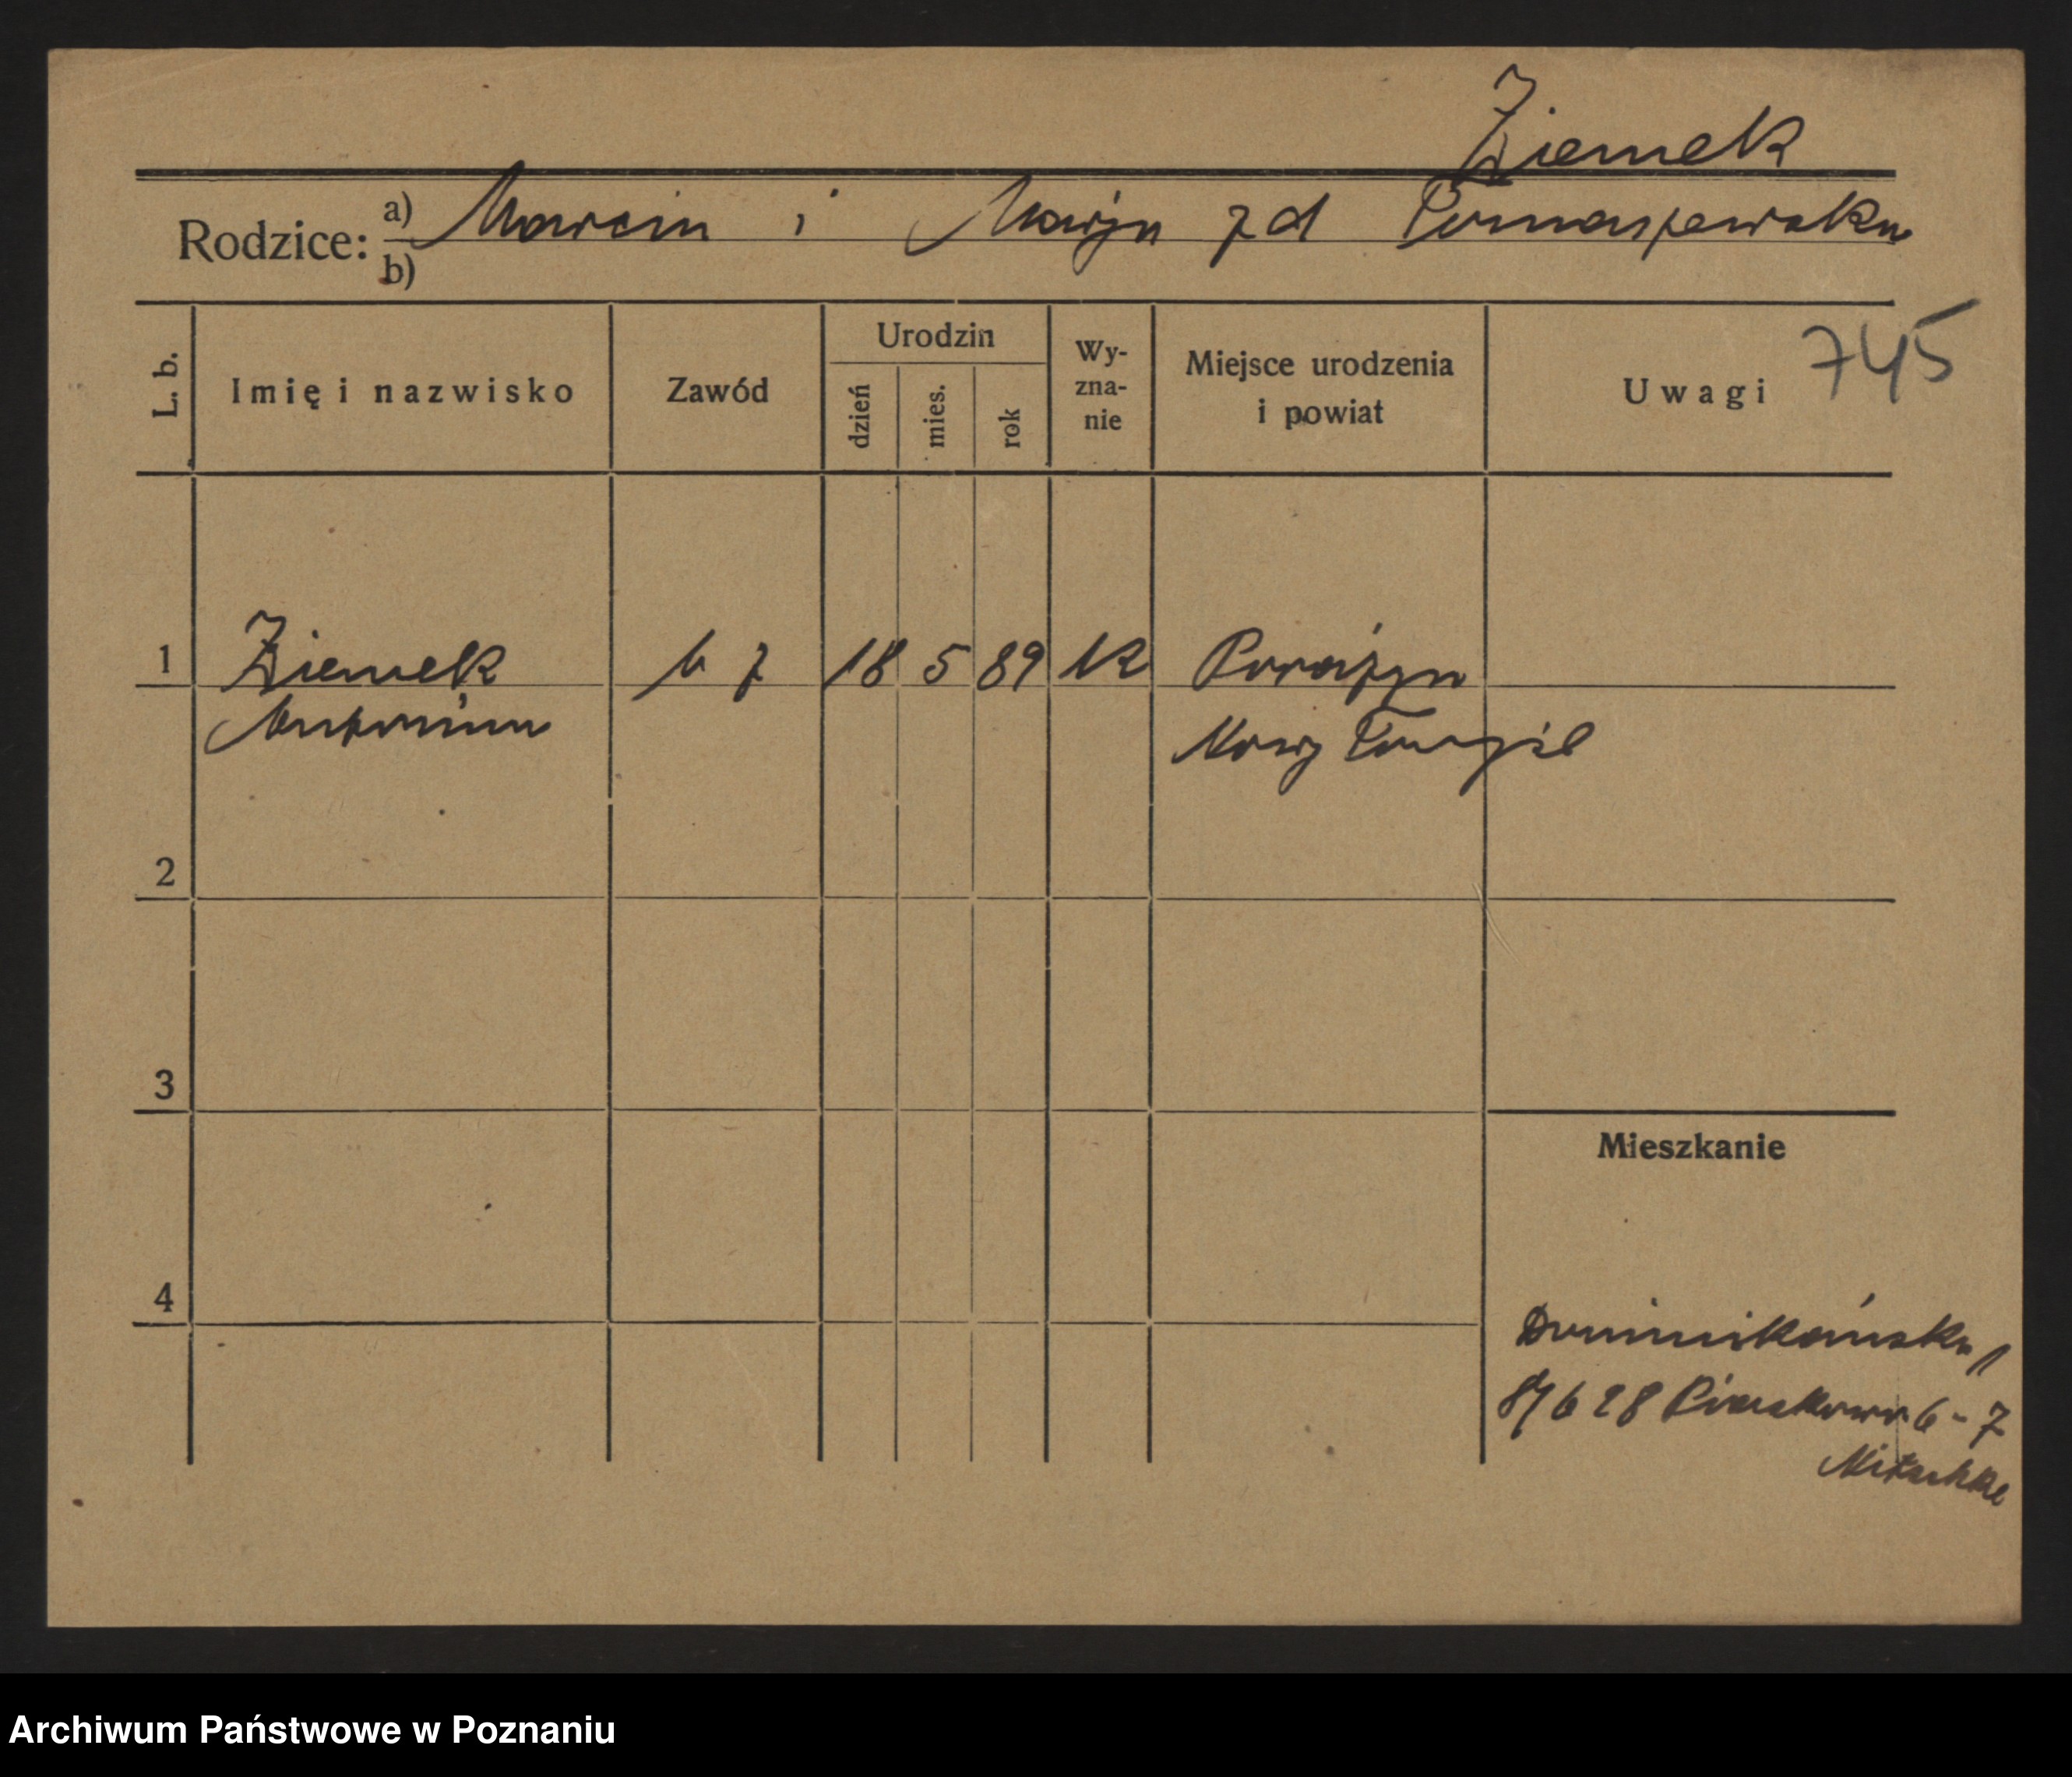 Ziemek
Rodzice: a) Marcin i Marja z d Tomaszewska
b)
L. b. Imię i nazwisko Zawód Urodzin dzień mies. rok Wyznanie Miejsce urodzenia i powiat Uwagi 745
1 Ziemek b z 18 5 89 k Porażyn
Antonina Nowy Tomyśl
2
3
Mieszkanie
4
Dominikańska 1
8/6 28 Piaskowa 6-7
Mitschke
Archiwum Państwowe w Poznaniu